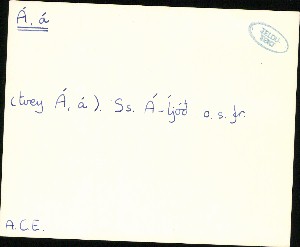 Á, á
(tvey Á, á). Ss. Á-ljóð o.s.fr.
A.C.E.